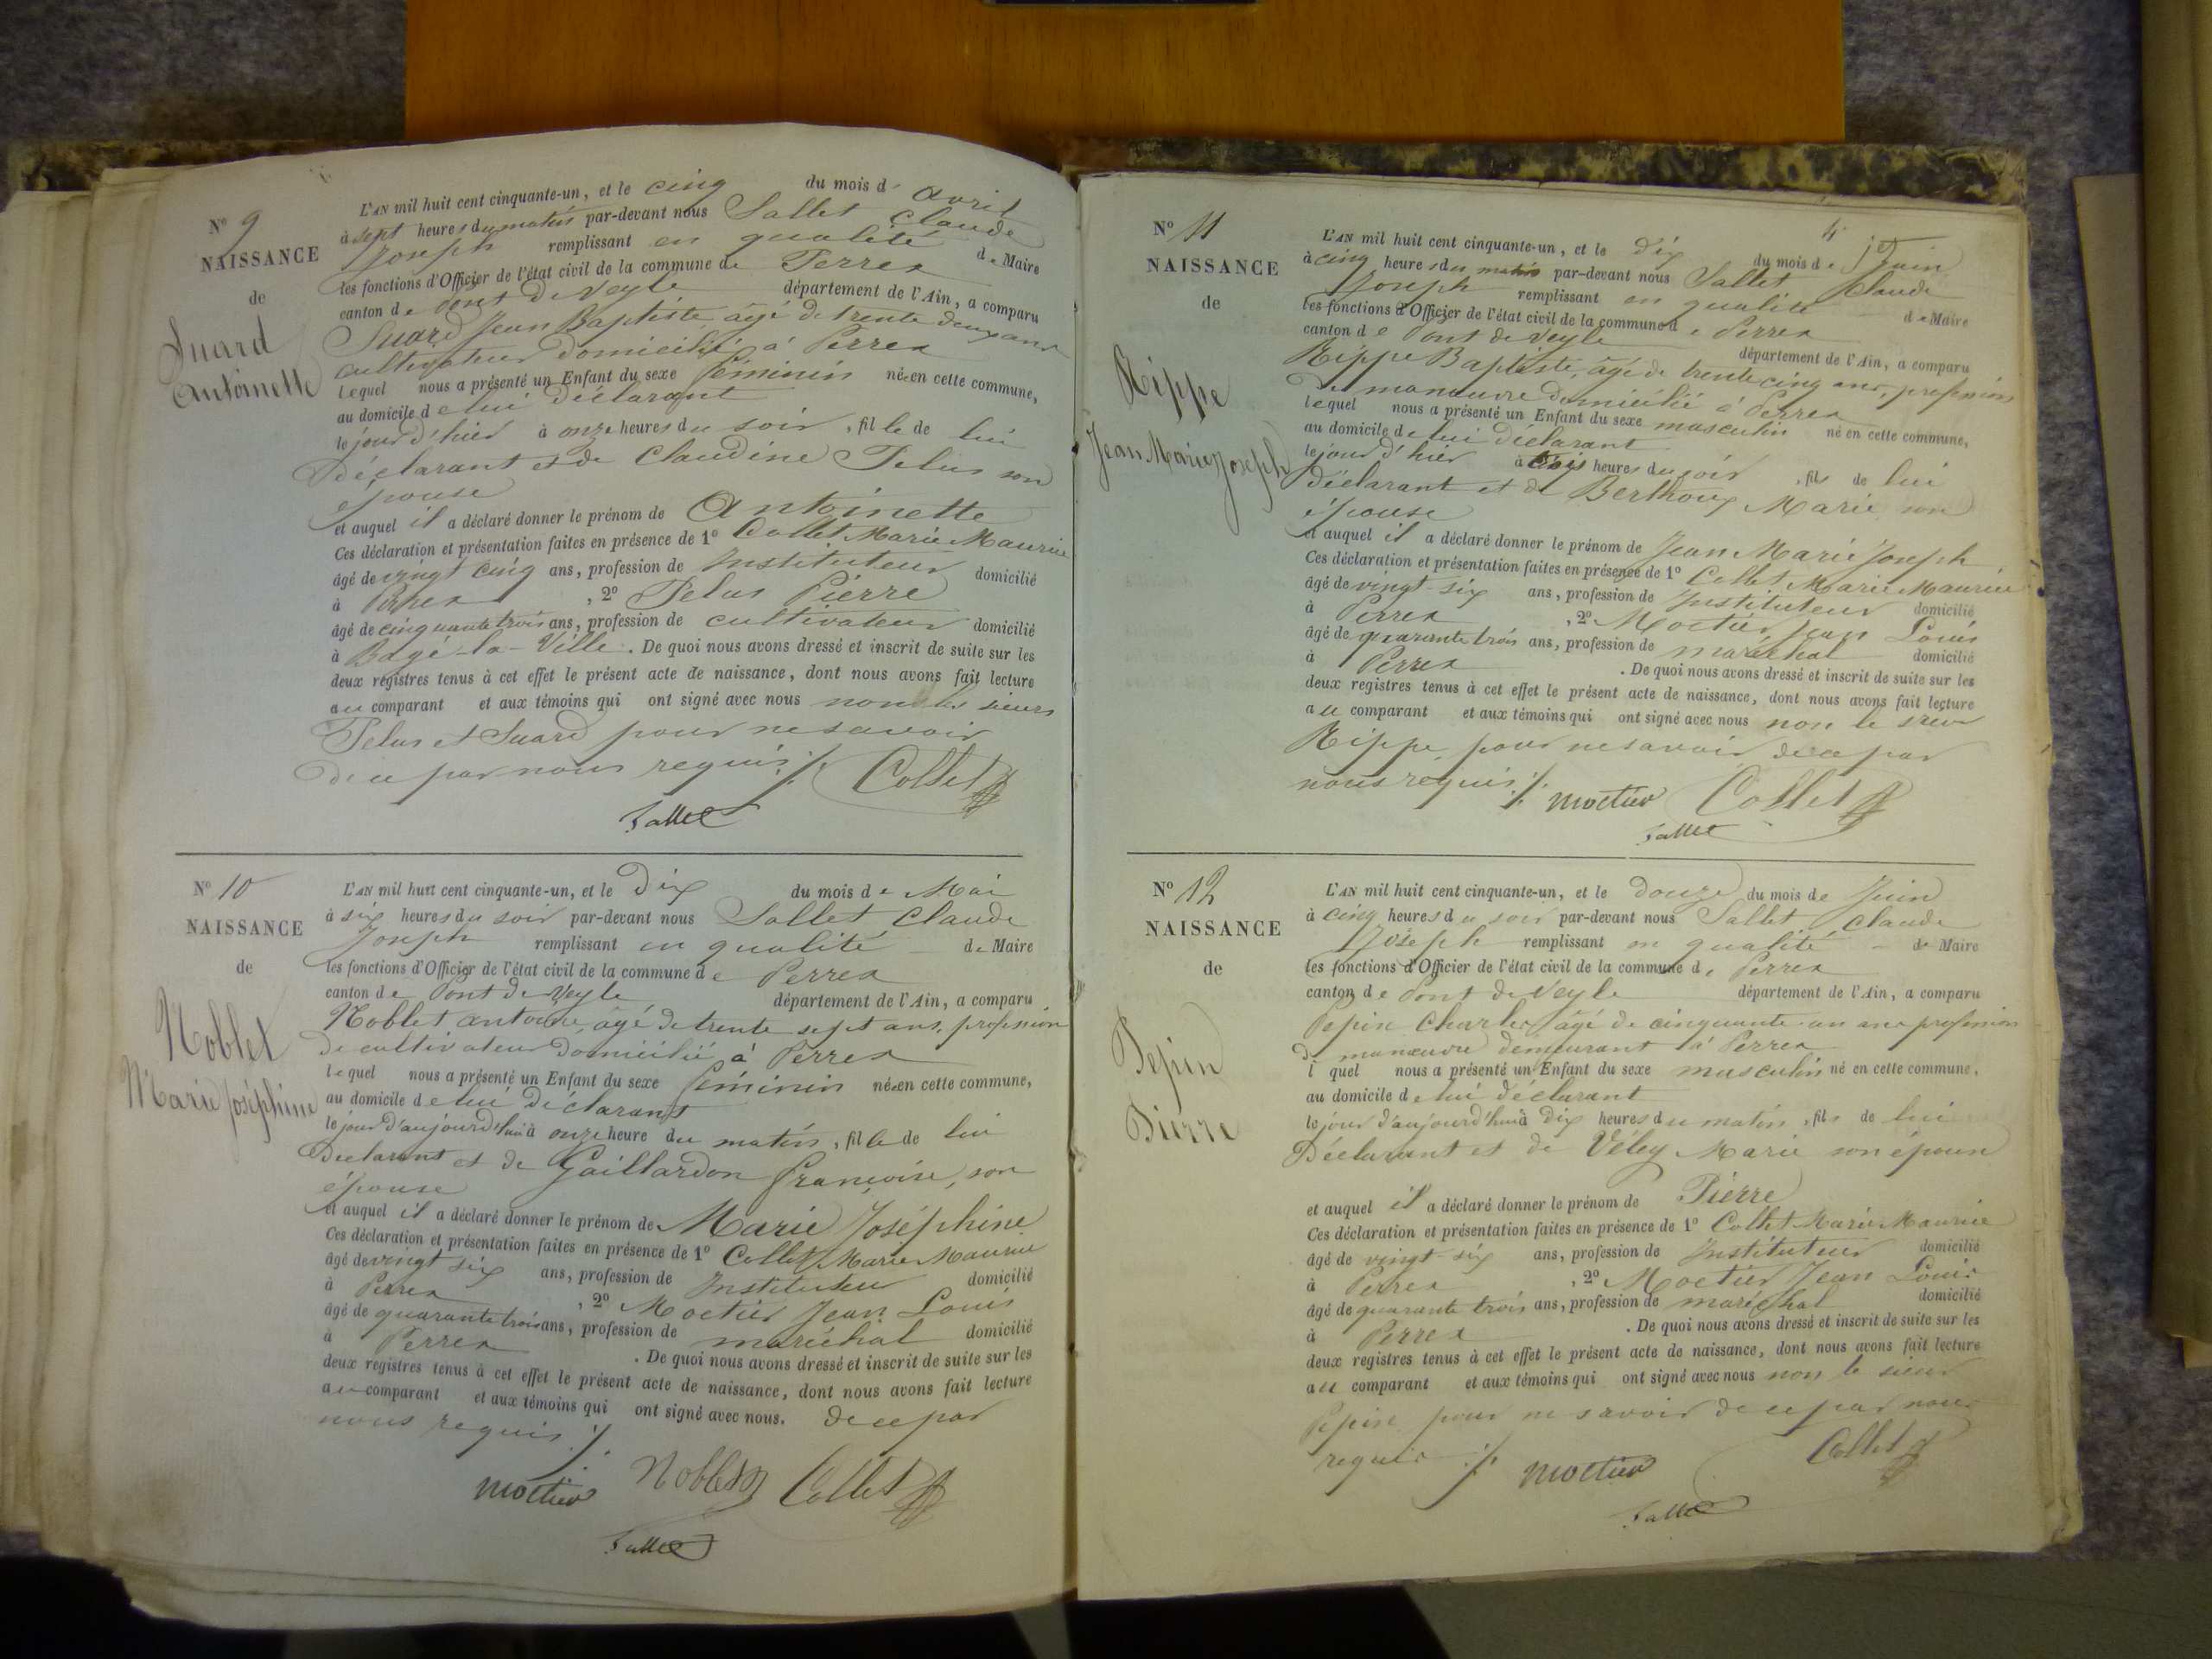 N° 9
NAISSANCE
de
Suard
Antoinette
L'AN mil huit cent cinquante-un, et le cinq du mois d' avril
à sept heures du matin par-devant nous Sallet Claude
Joseph remplissant en qualité de Maire
les fonctions d'Officier de l'état civil de la commune de Perrex
canton de Pont de Veyle département de l'Ain, a comparu
Suard Jean Baptiste âgé de trente deux ans
cultivateur domicilié à Perrex
lequel nous a présenté un Enfant du sexe féminin née en cette commune,
au domicile de lui déclarant
le jour d'hier à onze heures du soir, fille de lui
déclarant et de Claudine Pelus son
épouse
et auquel il a déclaré donner le prénom de Antoinette
Ces déclaration et présentation faites en présence de 1° Collet Marie Maurice
âgé de vingt cinq ans, profession de Instituteur domicilié
à Perrex, 2° Pelus Pierre
âgé de cinquante trois ans, profession de cultivateur domicilié
à Bagé-la-Ville. De quoi nous avons dressé et inscrit de suite sur les
deux registres tenus à cet effet le présent acte de naissance, dont nous avons fait lecture
au comparant et aux témoins qui ont signé avec nous non les sieurs
Pelus et Suard pour ne savoir
de ce par nous requis ./.
Collet
Sallet
N° 10
NAISSANCE
de
Noblet
Marie Joséphine
L'AN mil huit cent cinquante-un, et le dix du mois de Mai
à six heures du soir par-devant nous Sallet Claude
Joseph remplissant en qualité de Maire
les fonctions d'Officier de l'état civil de la commune de Perrex
canton de Pont de Veyle département de l'Ain, a comparu
Noblet Antoine âgé de trente sept ans, profession
de cultivateur domicilié à Perrex
lequel nous a présenté un Enfant du sexe féminin née en cette commune,
au domicile de lui déclarant
le jour d'aujourd'hui à onze heure du matin, fille de lui
déclarant et de Gaillardon Françoise, son
épouse
et auquel il a déclaré donner le prénom de Marie Joséphine
Ces déclaration et présentation faites en présence de 1° Collet Marie Maurice
âgé de vingt six ans, profession de Instituteur domicilié
à Perrex, 2° Moctier Jean Louis
âgé de quarante trois ans, profession de maréchal domicilié
à Perrex. De quoi nous avons dressé et inscrit de suite sur les
deux registres tenus à cet effet le présent acte de naissance, dont nous avons fait lecture
au comparant et aux témoins qui ont signé avec nous. de ce par
nous requis ./.
moctier Noblet Collet
Sallet
4
N° 11
NAISSANCE
de
Rippe
Jean Marie Joseph
L'AN mil huit cent cinquante-un, et le dix du mois de Juin
à cinq heures du matin par-devant nous Sallet Claude
Joseph remplissant en qualité de Maire
les fonctions d'Officier de l'état civil de la commune de Perrex
canton de Pont de Veyle département de l'Ain, a comparu
Rippe Baptiste, âgé de trente cinq ans, profession
de manœuvre domicilié à Perrex
lequel nous a présenté un Enfant du sexe masculin né en cette commune,
au domicile de lui déclarant
le jour d'hier à heures du soir, fils de lui
déclarant et de Berthoux Marie son
épouse
et auquel il a déclaré donner le prénom de Jean Marie Joseph
Ces déclaration et présentation faites en présence de 1° Collet Marie Maurice
âgé de vingt-six ans, profession de Instituteur domicilié
à Perrex, 2° Moctier Jean Louis
âgé de quarante trois ans, profession de maréchal domicilié
à Perrex. De quoi nous avons dressé et inscrit de suite sur les
deux registres tenus à cet effet le présent acte de naissance, dont nous avons fait lecture
au comparant et aux témoins qui ont signé avec nous non le sieur
Rippe pour ne savoir de ce par
nous requis ./. moctier Collet
Sallet
N° 12
NAISSANCE
de
Pepin
Pierre
L'AN mil huit cent cinquante-un, et le douze du mois de Juin
à cinq heures du soir par-devant nous Sallet Claude
Joseph remplissant en qualité de Maire
les fonctions d'Officier de l'état civil de la commune de Perrex
canton de Pont de Veyle département de l'Ain, a comparu
Pepin Charles âgé de cinquante-un ans profession
de manœuvre demeurant à Perrex
lequel nous a présenté un Enfant du sexe masculin né en cette commune,
au domicile de lui déclarant
le jour d'aujourd'hui à dix heures du matin, fils de lui
Déclarant et de Véley Marie son épouse
et auquel il a déclaré donner le prénom de Pierre
Ces déclaration et présentation faites en présence de 1° Collet Marie Maurice
âgé de vingt-six ans, profession de Instituteur domicilié
à Perrex, 2° Moctier Jean Louis
âgé de quarante trois ans, profession de maréchal domicilié
à Perrex. De quoi nous avons dressé et inscrit de suite sur les
deux registres tenus à cet effet le présent acte de naissance, dont nous avons fait lecture
au comparant et aux témoins qui ont signé avec nous non le sieur
Pepin pour ne savoir de ce par nous
requis ./. moctier Collet
Sallet